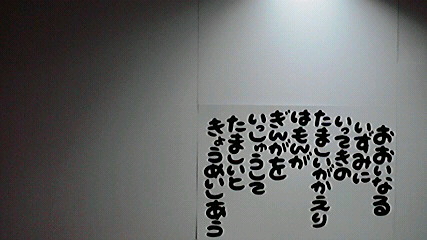 おおいなる
いずみに
いってきの
たましいがかえり
はもんが
ぎんがを
いっしゅうして
たましいと
きょうめいしあう